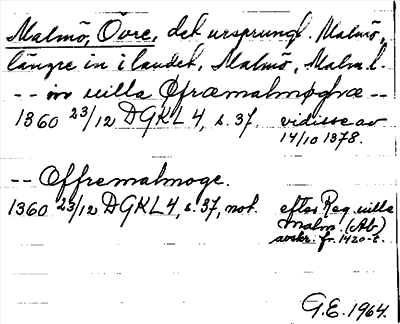 Malmö, Övre, det ursprungl. Malmö,
längre in i landet, Malmö, Malm.l.
-- in uilla Øfræmalmøghæ --
1360 23/12 DGKL4, s. 37. vidisse av
14/10 1378.
-- Offremalmoge.
1360 23/12 DGKL4, s. 37, not. efter Reg. uille
Malm. (Ab)
avskr. fr. 1420-t.
G.E. 1964.